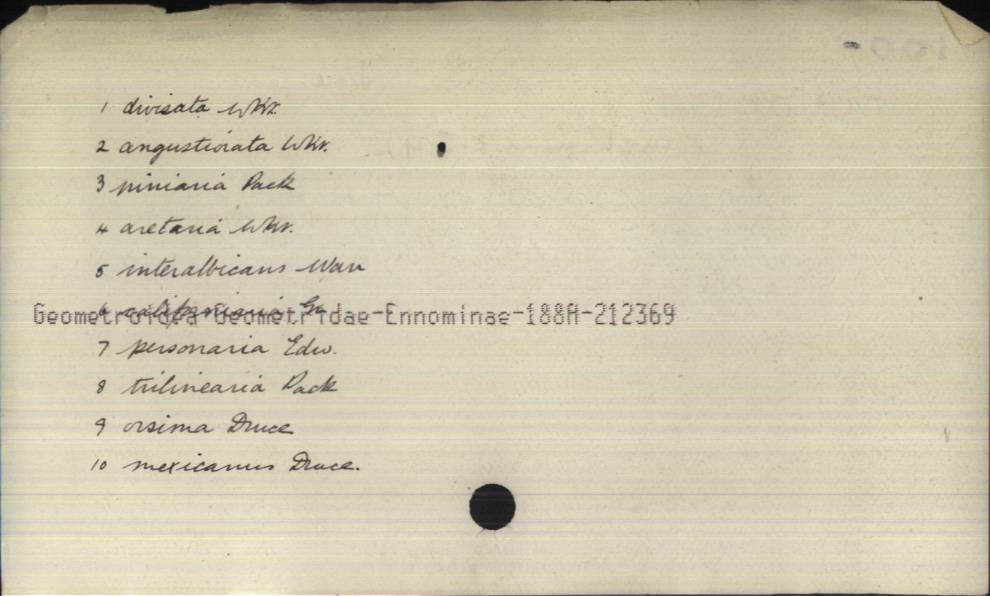 1 divisata Wkr.
2 angustiorata Wkr.
3 piniaria Pack
4 aretaria Wkr.
5 interalbicans Warr
6 californiaria Gn
Geometroidea-Geometridae-Ennominae-188A-212369
7 personaria Edw.
8 trilinearia Pack
9 orsima Druce
10 mexicanus Druce.